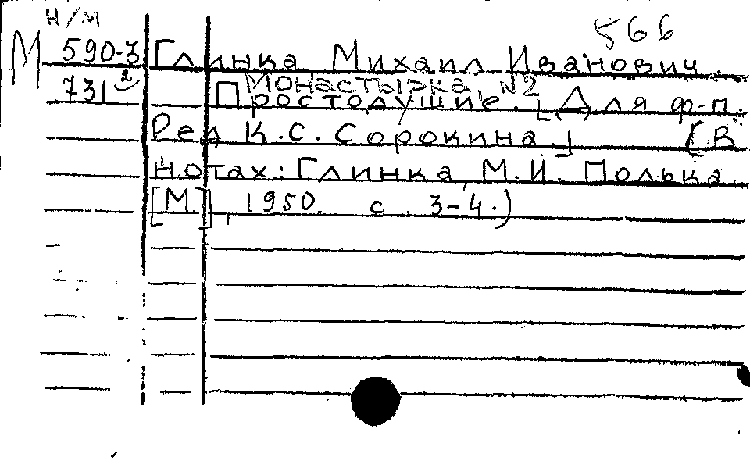 Н/М
566
М 590-3 Глинка Михаил Иванович.
731 2 Монастырка, №2
Простодушие. [Для ф-п.
Ред К.С. Сорокина.] (В
нотах: Глинка, М.И. Полька.
[М.], 1950. с. 3-4.)